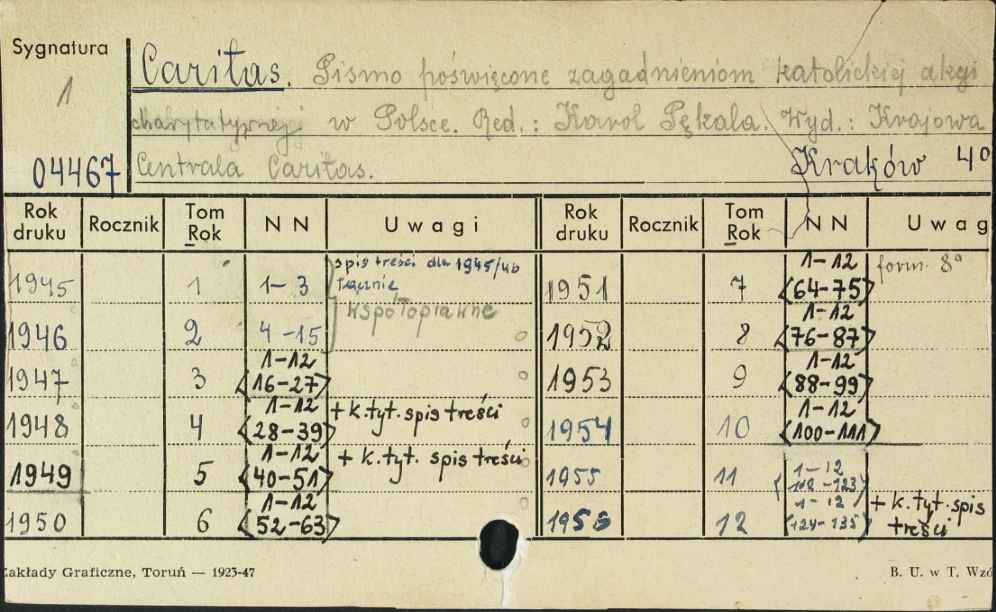 Sygnatura
1
04467
Caritas. Pismo poświęcone zagadnieniom katolickiej akcji
charytatywnej w Polsce. Red.: Karol Pękala. Wyd.: Krajowa
Centrala Caritas. Kraków 4°
Rok druku Rocznik Tom Rok N N Uwagi
1945 1 1-3 spis treści dla 1945/46 łącznie
1946 2 4-15 współoprawne
1947 3 1-12 <16-27>
1948 4 1-12 <28-39> + k.tyt. spis treści
1949 5 1-12 <40-51> + k.tyt. spis treści
1950 6 1-12 <52-63>
Rok druku Rocznik Tom Rok N N Uwag
1951 7 1-12 <64-75> form. 8°
1952 8 1-12 <76-87>
1953 9 1-12 <88-99>
1954 10 1-12 <100-111>
1955 11 1-12 <112-123>
1956 12 1-12 <124-135> + k.tyt. spis treści
Zakłady Graficzne, Toruń — 1923-47
B. U. w T. Wzó